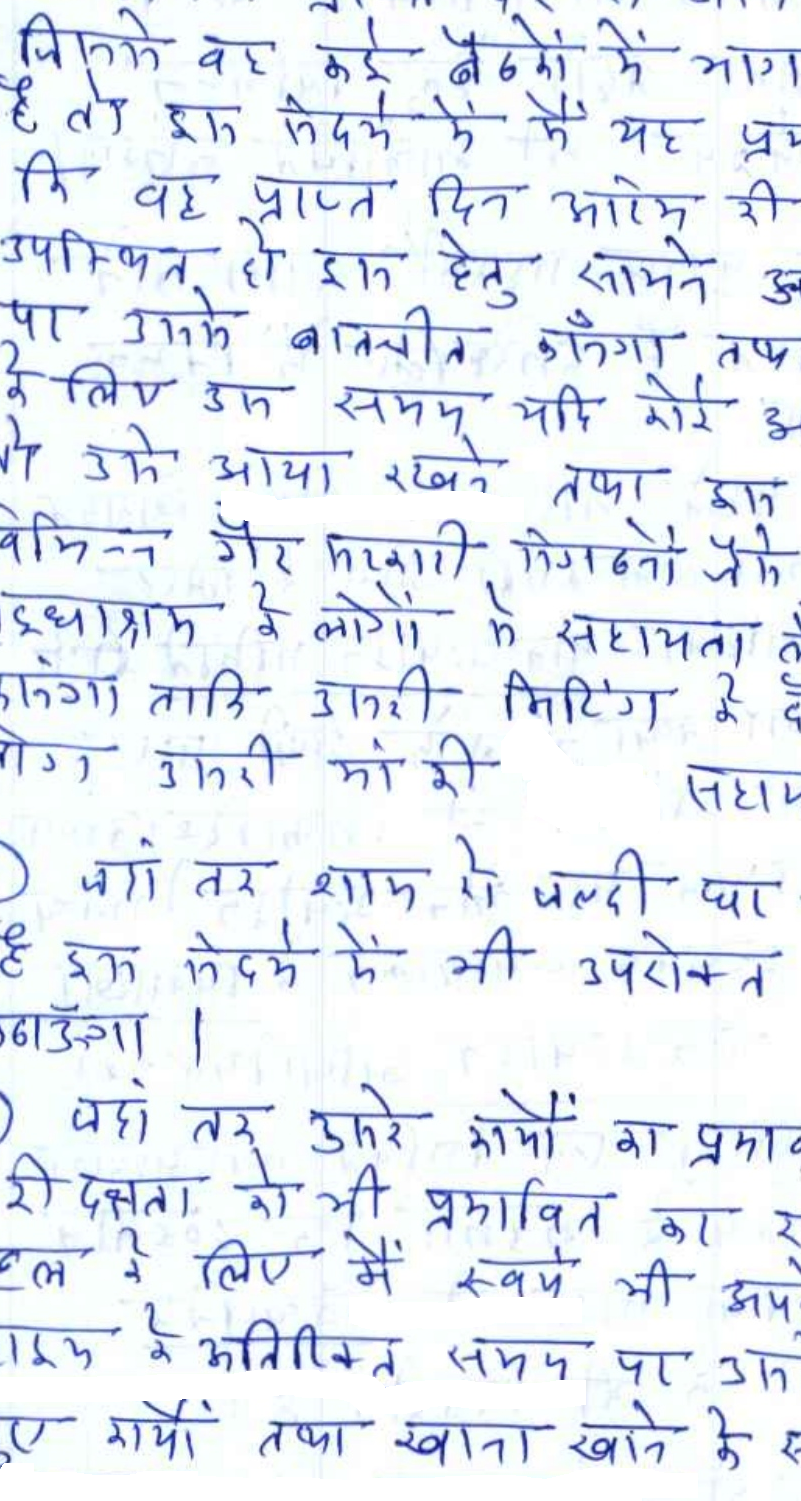 जिससे वह कई बैठकों में भाग
है तो इस संदर्भ में मैं यह
कि वह प्राप्त दिन आरंभ की
उपस्थित हो इस हेतु सामने
पर उनसे बातचीत करूँगा तथा
के लिए उस समय यदि कोई
तो उसे आया रखने तथा इस
विभिन्न गैर सरकारी संगठनों जैसे
वृद्धाश्रम के लोगों से सहायता
ताकि उसकी मिटिंग के
लोग उसकी मां की
जहां तक शाम को जल्दी घर
है इस संदर्भ में भी उपरोक्त
उठाऊँगा ।
जहां तक उसके कार्यों का प्रभाव
की दक्षता को भी प्रभावित कर
हल के लिए मैं स्वयं भी
टाइम के अतिरिक्त समय पर उस
हुए कार्यों तथा खाना खाने के